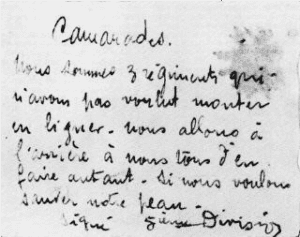 Camarades.
Nous sommes 3 régiments qui
n'avons pas voulut monter
en ligner. nous allons à
l'arrière à nous tous d'en
faire autant. si nous voulons
sauver notre peau.
Signé 5ieme Division